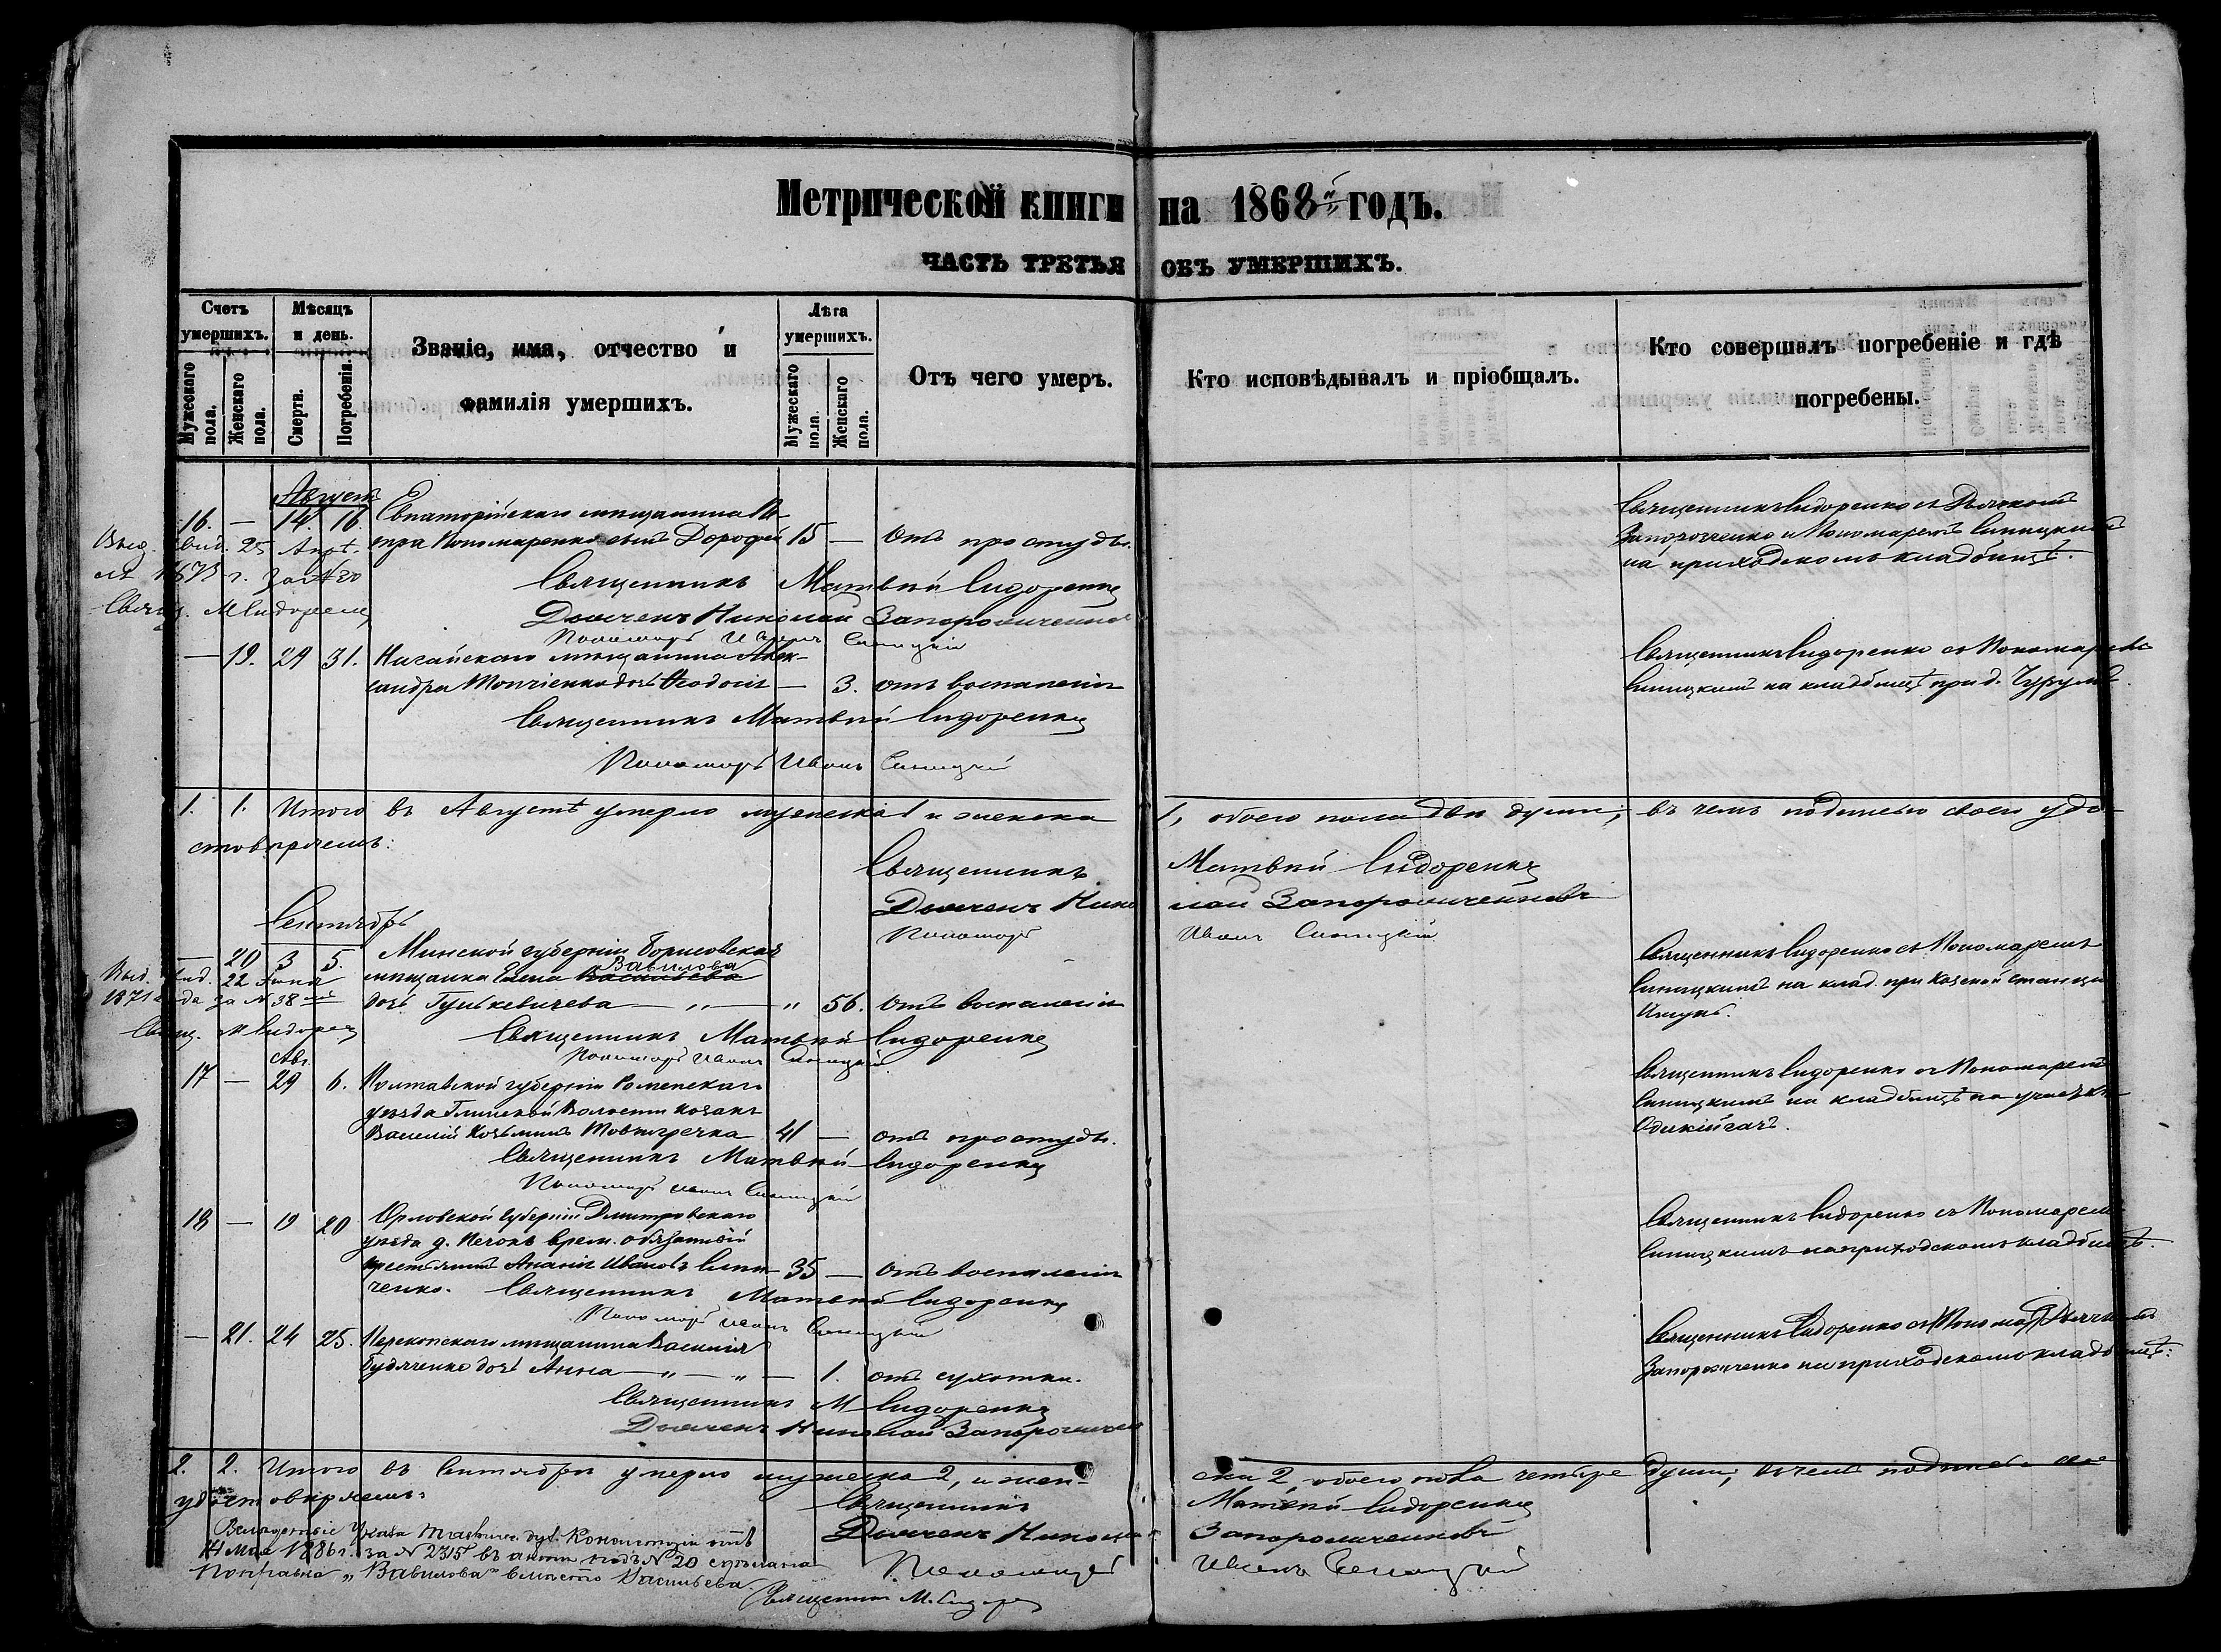 Метрической книги на 1868 годъ.
ЧАСТЬ ТРЕТЬЯ ОБЪ УМЕРШИХЪ.
Счетъ умершихъ.
Мужескаго пола.
Женскаго пола.
Мѣсяцъ и день.
Смерти.
Погребенія.
Званіе, имя, отчество и фамилія умершихъ.
Лѣта умершихъ.
Мужескаго пола.
Женскаго пола.
Отъ чего умеръ.
Кто исповѣдывалъ и пріобщалъ.
Кто совершалъ погребеніе и гдѣ погребены.
Августъ
16. — 14. 16. Евпаторійскаго мѣщанина Пе-
тра Пономаренко сынъ Дорофей 15 — Отъ простуды.
Священникъ Сидоренко съ Дьячкомъ
Запорожченко и Пономаремъ Синицкимъ
на приходскомъ кладбищѣ.
25 Апр.
1873 г. за № 30
Свящ. М Сидоренко
Священникъ Матвѣй Сидоренко
Дьячекъ Николай Запорожченковъ
Пономарь Иванъ Синицкій
— 19. 29 31. Ногайскаго мѣщанина Алек-
сандра Топчіенко дочь Ѳеодосія — 3. отъ воспаленія
Священникъ Сидоренко съ Пономаремъ
Синицкимъ на кладбищѣ при д.
Священникъ Матвѣй Сидоренко
Пономарь Иванъ Синицкій
1. 1. Итого въ Августѣ умерло мужеска 1 и женска 1, обоего пола двѣ души; въ чемъ подписью своею удо-
стовѣряемъ:
Священникъ Матвѣй Сидоренко
Дьячекъ Николай Запорожченковъ
Пономарь Иванъ Синицкій
Сентябрь
— 20 3 5. Минской губерніи Борисовская
мѣщанка Елена Васильева Вавилова
дочь Гулькевичева — „ — „ 56. отъ воспаленія
Священникъ Сидоренко съ Пономаремъ
Синицкимъ на клад. при Казеной станціи
Ишунь.
22 Іюня
1871 года за № 38
Свящ. М Сидоренко
Священникъ Матвѣй Сидоренко
Пономарь Иванъ Синицкій
Авг.
17 — 29 6. Полтавской губерніи Роменскаго
уѣзда Глинской Волости козакъ
Василій Козьминъ Товкгречка 41 — отъ простуды.
Священникъ Сидоренко съ Пономаремъ
Синицкимъ на кладбищѣ на участкѣ
Священникъ Матвѣй Сидоренко
Пономарь Иванъ Синицкій
18 — 19 20 Орловской Губерніи Дмитровскаго
уѣзда д. врем. обязанный
крестьянинъ Ананій Ивановъ
ченко. 35 — отъ воспаленія
Священникъ Сидоренко съ Пономаремъ
Синицкимъ на приходскомъ кладбищѣ.
Священникъ Матвѣй Сидоренко
Пономарь Иванъ Синицкій
— 21. 24 25. Перекопскаго мѣщанина Василія
дочь Анна — „ — „ — 1. отъ сухотки.
Священникъ Сидоренко съ Дьячкомъ
Запорожченко на приходскомъ кладбищѣ.
Священникъ М Сидоренко
Дьячекъ Николай Запорожченковъ
2. 2. Итого въ Сентябрѣ умерло мужеска 2, и жен-ска 2, обоего пола четыре души; въ чемъ подписью
удостовѣряемъ:
Священникъ Матвѣй Сидоренко
Дьячекъ Николай Запорожченковъ
Пономарь Иванъ Синицкій
Вслѣдствіе Указа Таврич. дух. Консисторіи отъ
Мая 1886 г. за № 2315 въ актѣ подъ № 20 сдѣлана
поправка „Вавилова" вмѣсто Васильева.
Священникъ М. Сидоренко